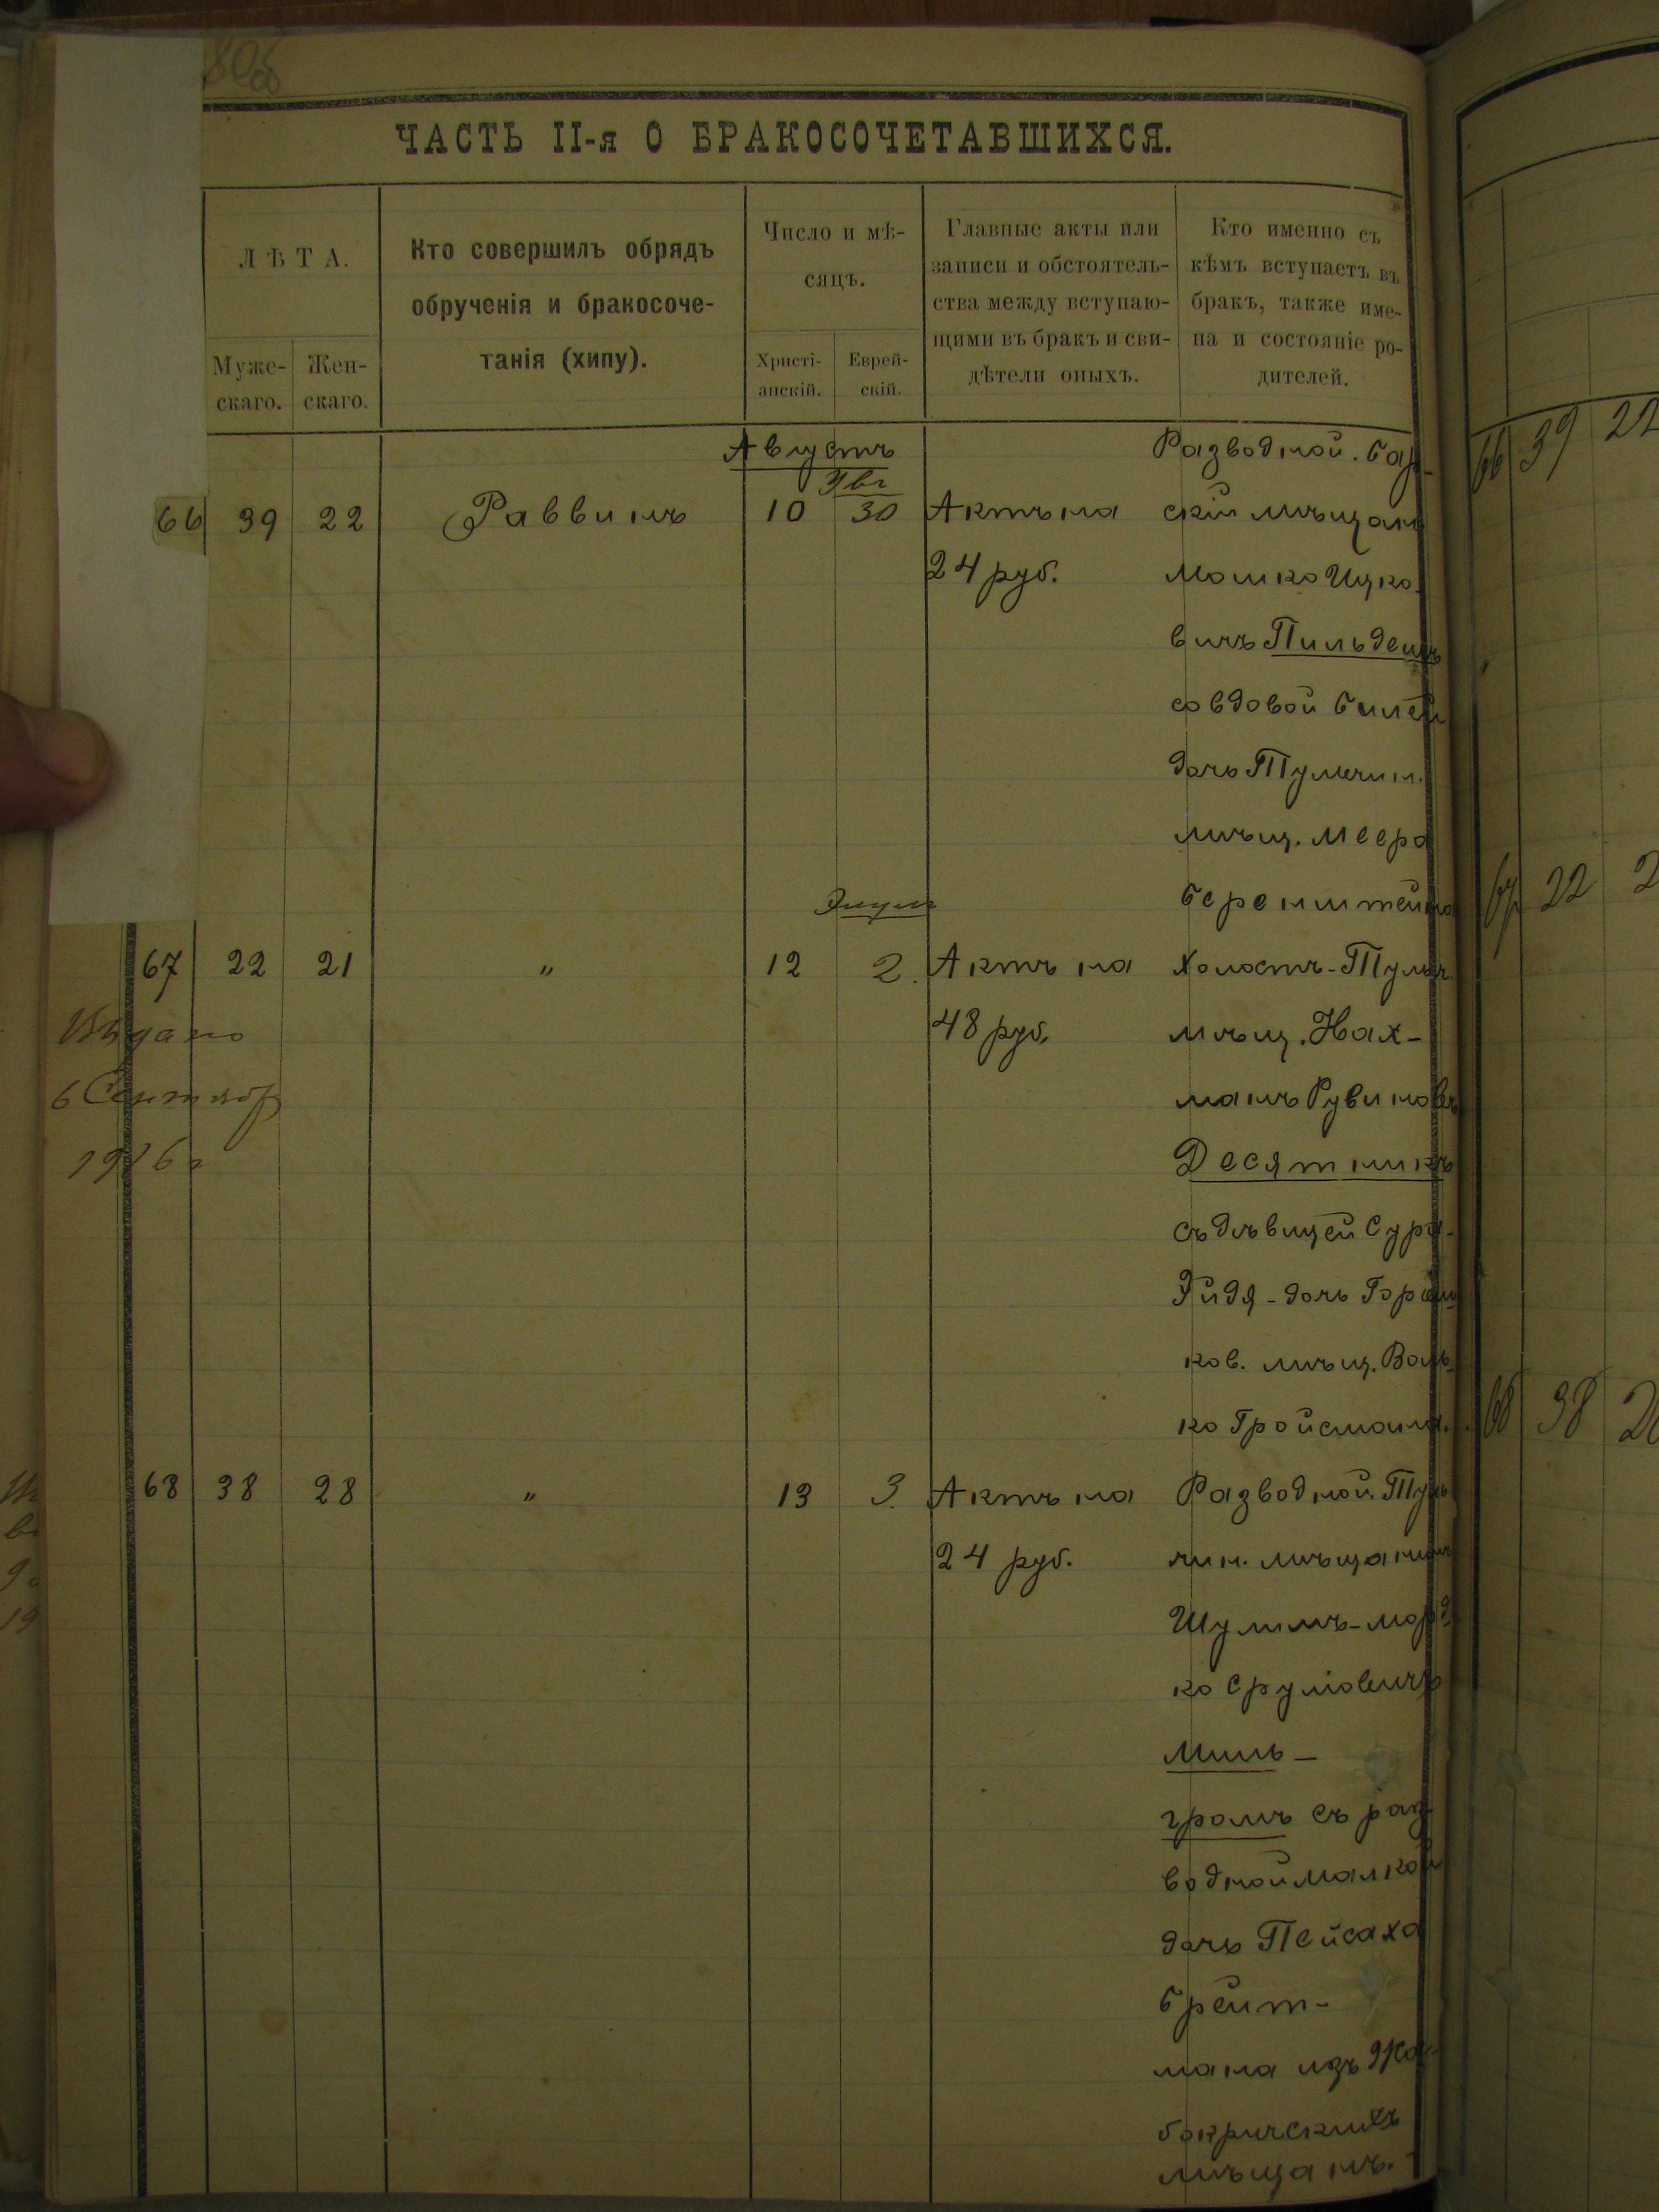 ЧАСТЬ II-я О БРАКОСОЧЕТАВШИХСЯ.
ЛѢТА.
Муже-
скаго.
Жен-
скаго.
Кто совершилъ обрядъ
обрученія и бракосоче-
танія (хипу).
Число и мѣ-
сяцъ.
Христі-
анскій.
Еврей-
скій.
Главные акты или
записи и обстоятель-
ства между вступаю-
щими въ бракъ и сви-
дѣтели оныхъ.
Кто именно съ
кѣмъ вступаетъ въ
бракъ, также име-
на и состояніе ро-
дителей.
Августъ
66 39 22 Раввинъ 10 30 Актъ на
24 руб.
Разводной. Бар-
скій мѣщан
Мошко Ицко-
вичъ Пильдешъ
со вдовой
дочь Тульчин.
мѣщ. Меера
Беренштейна
Элулъ
67 22 21 " 12 2. Актъ на
48 руб.
Холостъ-Тульч
мѣщ. Нах-
манъ Рувиновъ
Десятникъ
съ дѣвицей Сура-
Эйдя-дочь
ков. мѣщ. Воль-
ко Гройсмана.
Выдано
6 Сентябр
1916 г
68 38 28 " 13 3. Актъ на
24 руб.
Разводной. Туль
чин. мѣщанинъ
Шулимъ-Морд
ко Сруловичъ
Миль-
громъ съ раз
водной Малкой
дочь Пейсаха
Брейт-
мана изъ Жа-
бокричскихъ
мѣщанъ.
66 39 22
67 22 2
68 38 2